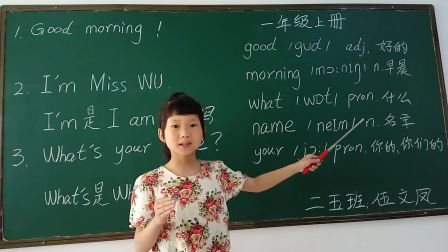 1. Good morning !
2. I'm Miss WU.
I'm是 I am
3. What's your ?
What's是 Wh
一年级上册
good /gud/ adj. 好的
morning /mɔ:nɪŋ/ n. 早晨
what /wɒt/ pron. 什么
name /neɪm/ n. 名字
your /jɔ:/ pron. 你的, 你们的
二五班: 伍文凤